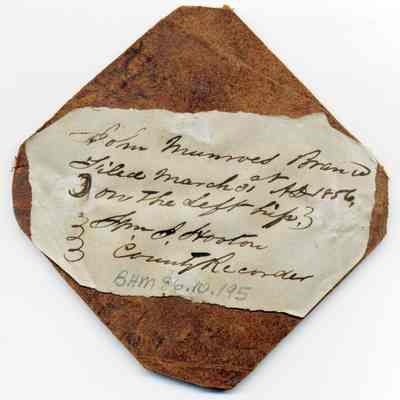 John Munroes Brand
Filed March 31st AD 1856,
3 on the left hip 3
Wm J. Hooton
County Recorder
BHM 86.10.195